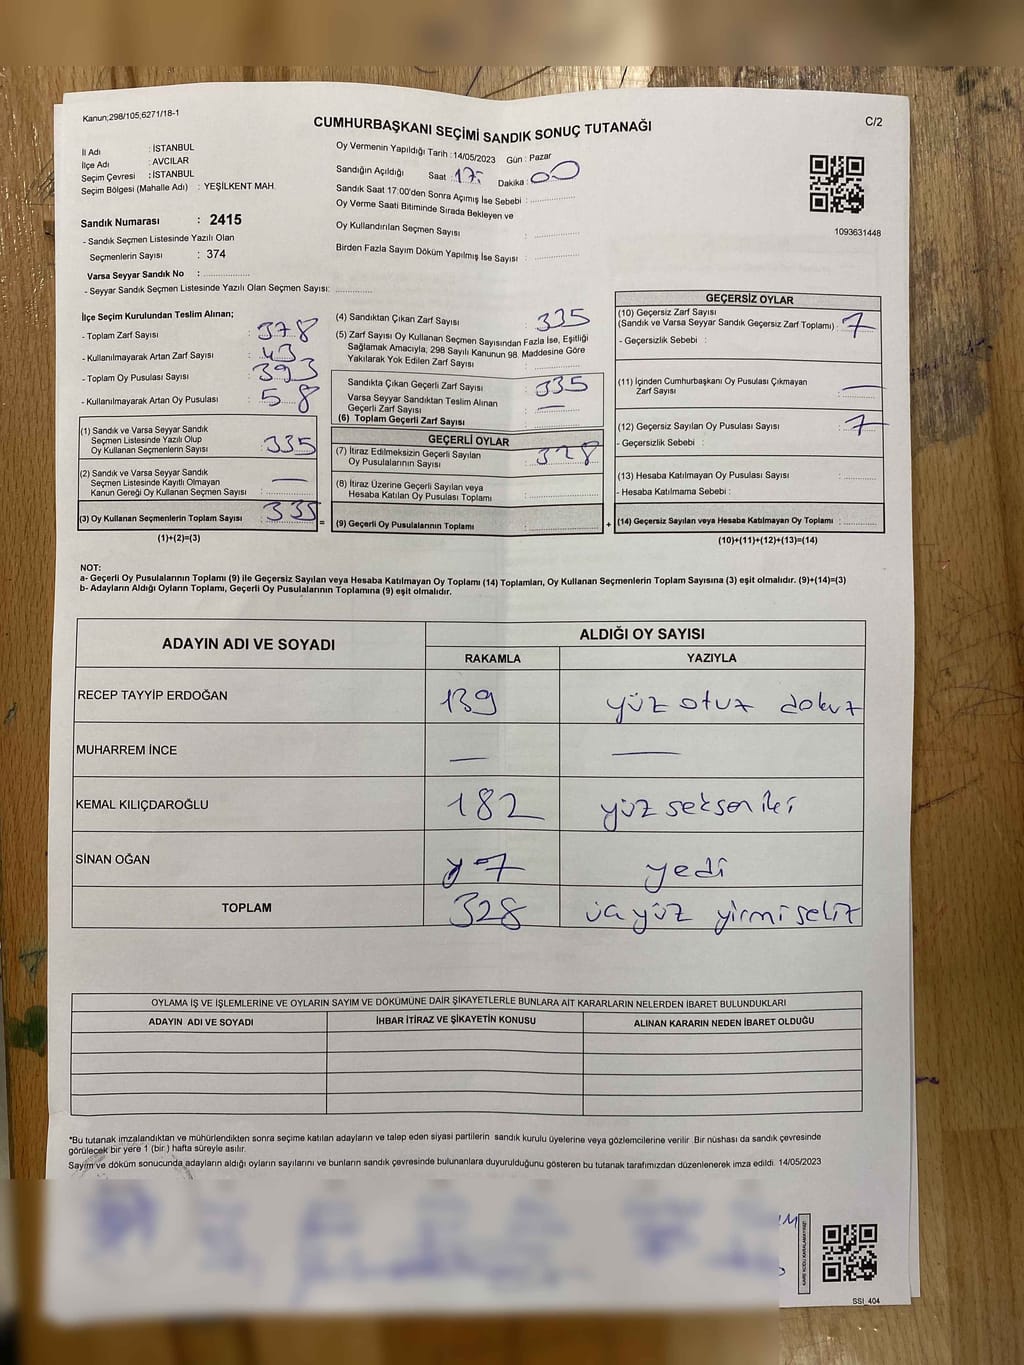 Kanun;298/105;6271/18-1
C/2
CUMHURBAŞKANI SEÇİMİ SANDIK SONUÇ TUTANAĞI
İl Adı : İSTANBUL
İlçe Adı : AVCILAR
Seçim Çevresi : İSTANBUL
Seçim Bölgesi (Mahalle Adı) : YEŞİLKENT MAH.
Sandık Numarası : 2415
- Sandık Seçmen Listesinde Yazılı Olan
Seçmenlerin Sayısı : 374
Varsa Seyyar Sandık No : ..............
- Seyyar Sandık Seçmen Listesinde Yazılı Olan Seçmen Sayısı: ............
Oy Vermenin Yapıldığı Tarih : 14/05/2023 Gün : Pazar
Sandığın Açıldığı Saat : 17: Dakika : 00
Sandık Saat 17:00'den Sonra Açımış İse Sebebi : ..............
Oy Verme Saati Bitiminde Sırada Bekleyen ve
Oy Kullandırılan Seçmen Sayısı : ..............
Birden Fazla Sayım Döküm Yapılmış İse Sayısı : ..............
1093631448
İlçe Seçim Kurulundan Teslim Alınan;
- Toplam Zarf Sayısı : 378
- Kullanılmayarak Artan Zarf Sayısı : 43
- Toplam Oy Pusulası Sayısı : 393
- Kullanılmayarak Artan Oy Pusulası : 58
(1) Sandık ve Varsa Seyyar Sandık
Seçmen Listesinde Yazılı Olup
Oy Kullanan Seçmenlerin Sayısı : 335
(2) Sandık ve Varsa Seyyar Sandık
Seçmen Listesinde Kayıtlı Olmayan
Kanun Gereği Oy Kullanan Seçmen Sayısı : —
(3) Oy Kullanan Seçmenlerin Toplam Sayısı : 335 =
(1)+(2)=(3)
(4) Sandıktan Çıkan Zarf Sayısı : 335
(5) Zarf Sayısı Oy Kullanan Seçmen Sayısından Fazla İse, Eşitliği
Sağlamak Amacıyla, 298 Sayılı Kanunun 98. Maddesine Göre
Yakılarak Yok Edilen Zarf Sayısı : ..............
Sandıkta Çıkan Geçerli Zarf Sayısı : 335
Varsa Seyyar Sandıktan Teslim Alınan
Geçerli Zarf Sayısı : —
(6) Toplam Geçerli Zarf Sayısı : ..............
GEÇERLİ OYLAR
(7) İtiraz Edilmeksizin Geçerli Sayılan
Oy Pusulalarının Sayısı : 328
(8) İtiraz Üzerine Geçerli Sayılan veya
Hesaba Katılan Oy Pusulası Toplamı : ..............
(9) Geçerli Oy Pusulalarının Toplamı : .............. +
GEÇERSİZ OYLAR
(10) Geçersiz Zarf Sayısı
(Sandık ve Varsa Seyyar Sandık Geçersiz Zarf Toplamı) : 7
- Geçersizlik Sebebi :
(11) İçinden Cumhurbaşkanı Oy Pusulası Çıkmayan
Zarf Sayısı : —
(12) Geçersiz Sayılan Oy Pusulası Sayısı : 7
- Geçersizlik Sebebi :
(13) Hesaba Katılmayan Oy Pusulası Sayısı : ..........
- Hesaba Katılmama Sebebi :
(14) Geçersiz Sayılan veya Hesaba Katılmayan Oy Toplamı : ..........
(10)+(11)+(12)+(13)=(14)
NOT:
a- Geçerli Oy Pusulalarının Toplamı (9) ile Geçersiz Sayılan veya Hesaba Katılmayan Oy Toplamı (14) Toplamları, Oy Kullanan Seçmenlerin Toplam Sayısına (3) eşit olmalıdır. (9)+(14)=(3)
b- Adayların Aldığı Oyların Toplamı, Geçerli Oy Pusulalarının Toplamına (9) eşit olmalıdır.
ADAYIN ADI VE SOYADI
ALDIĞI OY SAYISI
RAKAMLA YAZIYLA
RECEP TAYYİP ERDOĞAN 139 yüz otuz dokuz
MUHARREM İNCE — —
KEMAL KILIÇDAROĞLU 182 yüz seksen iki
SİNAN OĞAN 7 yedi
TOPLAM 328 üç yüz yirmi sekiz
OYLAMA İŞ VE İŞLEMLERİNE VE OYLARIN SAYIM VE DÖKÜMÜNE DAİR ŞİKAYETLERLE BUNLARA AİT KARARLARIN NELERDEN İBARET BULUNDUKLARI
ADAYIN ADI VE SOYADI İHBAR İTİRAZ VE ŞİKAYETİN KONUSU ALINAN KARARIN NEDEN İBARET OLDUĞU
*Bu tutanak imzalandıktan ve mühürlendikten sonra seçime katılan adayların ve talep eden siyasi partilerin sandık kurulu üyelerine veya gözlemcilerine verilir. Bir nüshası da sandık çevresinde
görülecek bir yere 1 (bir ) hafta süreyle asılır.
Sayım ve döküm sonucunda adayların aldığı oyların sayılarını ve bunların sandık çevresinde bulunanlara duyurulduğunu gösteren bu tutanak tarafımızdan düzenlenerek imza edildi. 14/05/2023
KARE KODU KARALAMAYINIZ!
SSİ_404